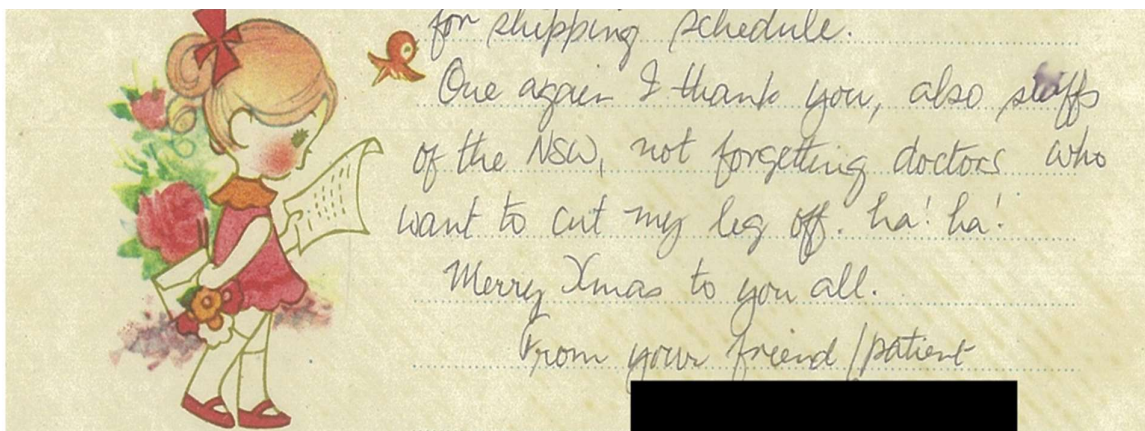 for shipping schedule.
One again I thank you, also staffs
of the NSW, not forgetting doctors who
want to cut my leg off. ha! ha!
Merry Xmas to you all.
From your friend/patient